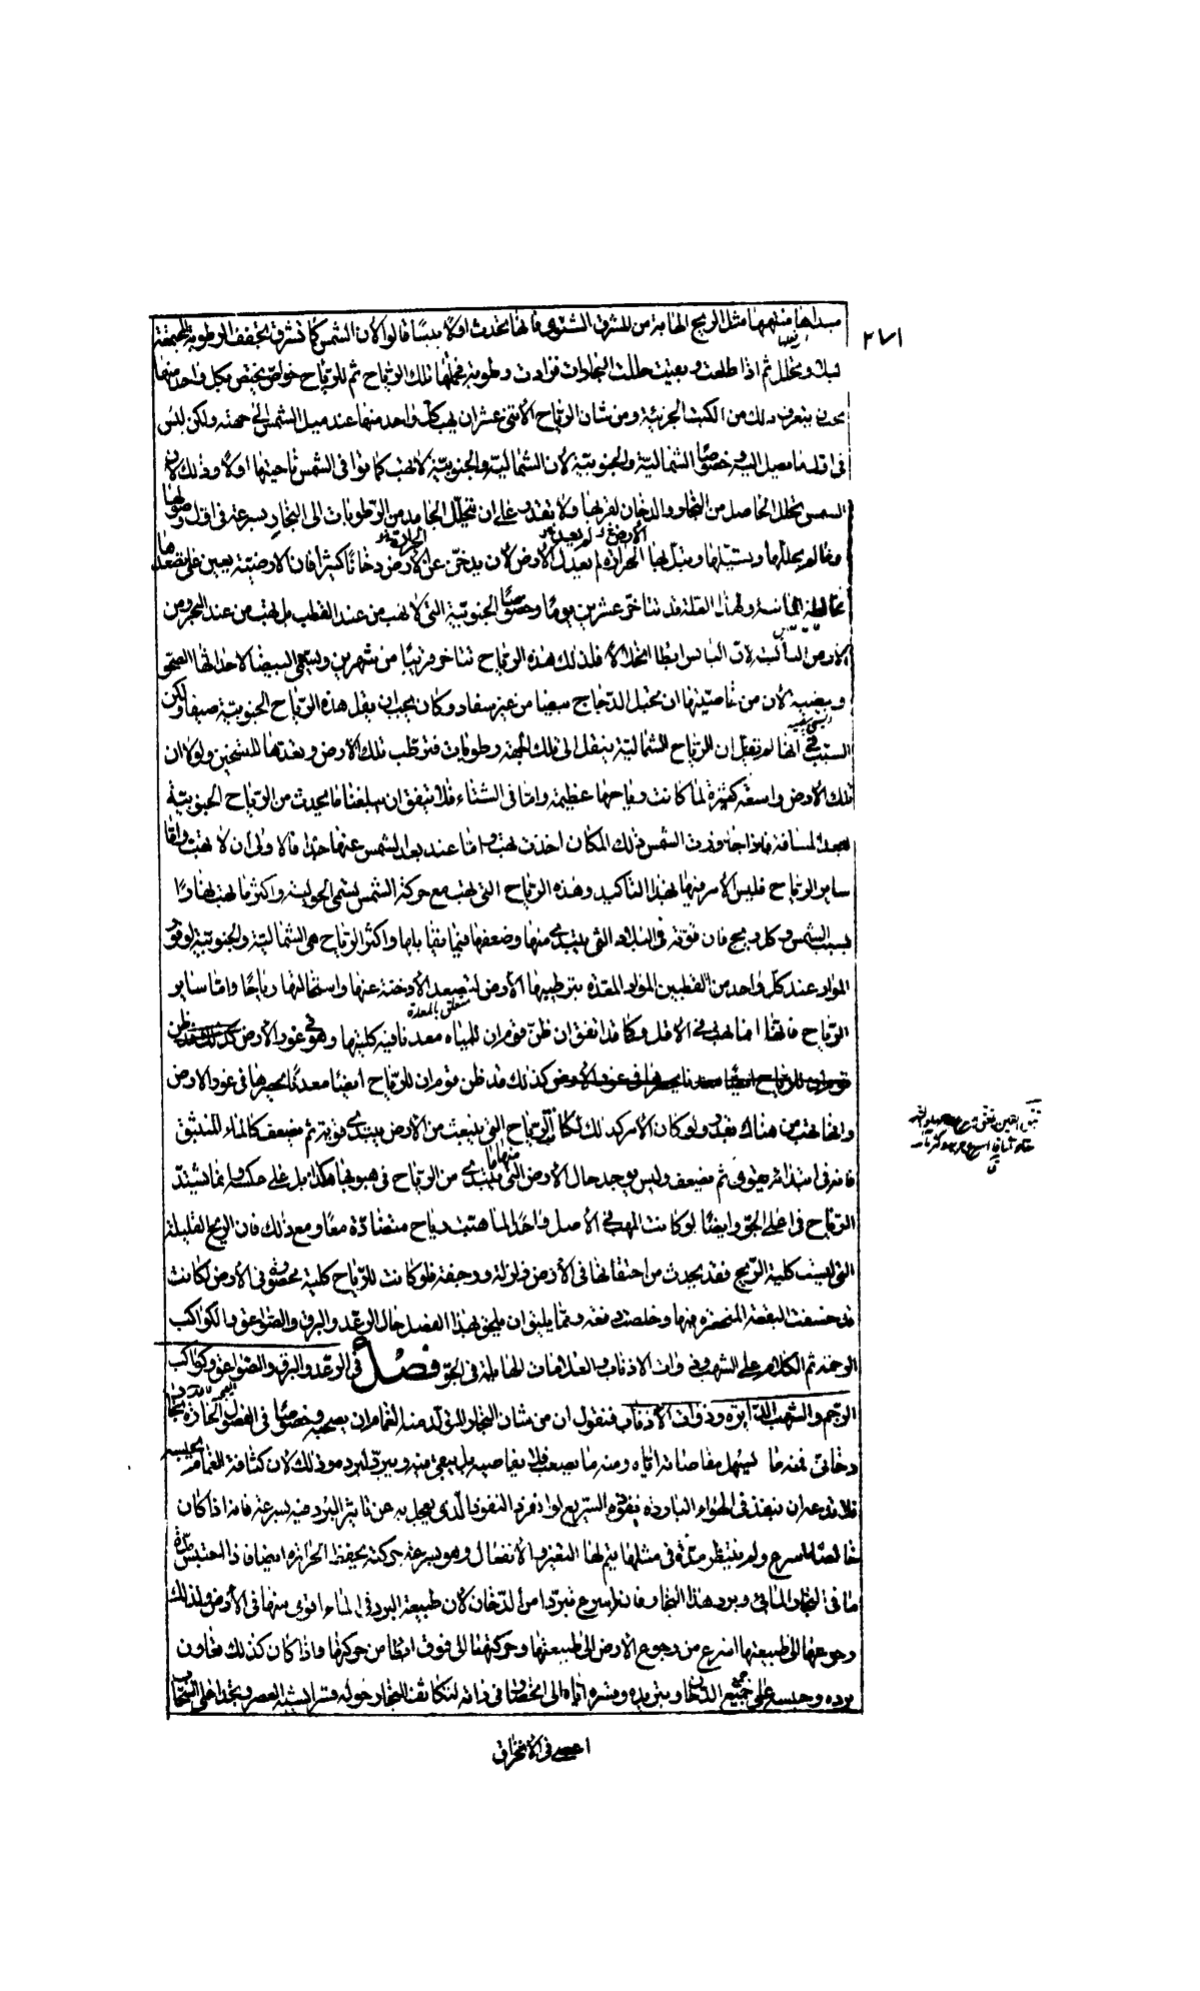 ٢٧١
مبدأها منتهيها مثل الريح الهابة من المشرق الشتوي فانها تحدث اولا يبسا قالوا لان الشمس كما تشرق تجفف الرطوبة المجتمعة
ليلا وتحلل ثم اذا طلعت وبقيت حللت البخارات فزادت رطوبة فحملتها تلك الرياح ثم للرياح خواص يختص بكل واحد منها
يجب ان يتعرف ذلك من الكتب الجزئية ومن شان الرياح الاثنى عشر ان يهب كل واحد منها عند ميل الشمس الى جهته ولكن ليس
في اول ما تميل اليه وخصوصا الشمالية والجنوبية لان الشمالية والجنوبية لا تهب كما توافى الشمس ناحيتها اولا وذلك لان
الشمس تحلل الحاصل من البخار والدخان لقربها ولا تقدر على ان تحلل الجامد من الرطوبات الى البخار بسرعة في اول وصولها
وما لم يحللها ويسيلها ويبل بها الارض لم يعد الحرارة الارض لان يدخن عن الارض دخانا كثيرا فان الارضية يعين على تصعدها
مخالطة المائية ولهذه العلة قد تتاخر عشرين يوما وخصوصا الجنوبية التي لا تهب من عند القطب بل تهب من عند البحر ومن
الارض اليابسة لان اليابس ابطا انحلالا فلذلك هذه الرياح تتاخر قريبا من شهرين ويسمى البيضية لاحداثها الصحو
وبيضية لان من خاصيتها ان تحبل الدجاج بيضا من غير سفاد وكان يجب ان يقل هذه الرياح الجنوبية صيفا ولكن
السبب في انها لم تقل ان الرياح الشمالية ينقل الى تلك الجهة رطوبات فترطب تلك الارض ويعدها للتسخين ولولا ان
تلك الارض واسعة كثيرة لما كانت رياحها عظيمة واما في الشتاء فلا يتفق ان يبلغنا ما يحدث من الرياح الجنوبية
لبعد المسافة فاذا جاوزت الشمس ذلك المكان اخذت تهب واما عند بعد الشمس عنها جدا فالاولى ان لا تهب واما
سائر الرياح فليس الامر فيها بهذا التاكيد وهذه الرياح التي تهب مع حركة الشمس يسمى الحولية واكثر ما تهب نهارا
بسبب الشمس وكل ريح فان قوته في البلاد التي يبتدى منها وضعفها فيما يقابلها واكثر الرياح هي الشمالية والجنوبية لوفور
المواد عند كل واحد من القطبين المواد المعدة بترطيبها الارض لتصعيد الادخنة عنها واستحالتها رياحا واما سائر
متعلق بالمعدة
الرياح فانها انما تهب في الاقل وكما قد اتفق ان ظن قوم ان للمياه معدنا فيه كليتها وهو في غور الارض
كذلك قد ظن قوم ان للرياح ايضا معدنا يحصرها في غور الارض
وانها تهب من هناك بقدر ولو كان الامر كذلك لكان الرياح التي تنبعث من الارض يبتدى قوية ثم يضعف كالماء المنبثق
فانه في ابتدائه حيث قوى ثم يضعف وليس يوجد حال الارض التي يبتدى منها من الرياح في هبوبها هكذا بل على عكس وانما تشتد
الرياح في اعلى الجو وايضا لو كانت المهب في الاصل واحدا لما هبت رياح متضادة معا ومع ذلك فان الريح القليلة
التي ليست كلية الريح فقد يحدث من احتقانها في الارض زلزلة ورجفة فلو كانت للرياح كلية محصورة في الارض لكانت
قد خسفت البقعة المنحصرة فيها وخلصت دفعة ومما يليق ان يلحق بهذا الفصل حال الرعد والبرق والصواعق والكواكب
الرجمة ثم الكلام على الشهب وذوات الاذناب والعلامات الهائلة في الجو فصل في الرعد والبرق والصواعق وكواكب
الرجم والشهب الدائرة وذوات الاذناب فنقول ان من شان البخار الذي يتولد منه الغمام ان يصحبه وخصوصا في الفصول الحارة بخار
دخاني فمنه ما يسهل مفاصلته اياه ومنه ما يصعب فلا يفاصله بل يبقى فيه ويبرد ببرده وذلك لان كثافة الغمام تحبسه
فلا تدعه ان ينفذ في الهواء البارد بقوة السريع لو انفرد النفوذ الذي يعجل به عن تاثير البرد فيه بسرعة فانه اذا كان
خالصا اسرع ولم ينتظر مدة في مثلها يتم لها التغير والانفعال وهو بسرعة حركته يحفظ الحرارة ايضا فاذا احتبس مدة
ما في البخار المائي وبرد هذا البخار فانه اسرع تبردا من الدخان لان طبيعة البرد في الماء اقوى منها في الارض ولذلك
رجوعها الى طبيعتها اسرع من رجوع الارض الى طبيعتها وحركتها الى فوق ابطا من حركتها واذا كان كذلك تعاون
برده وحبسه على جميع الدخان وتبريده وقسره اياه الى انحصار في ذاته لتكاثف البخار حوله قسرا يشبه العصر ويجد اعلى السحاب
اعصى في الانخراق